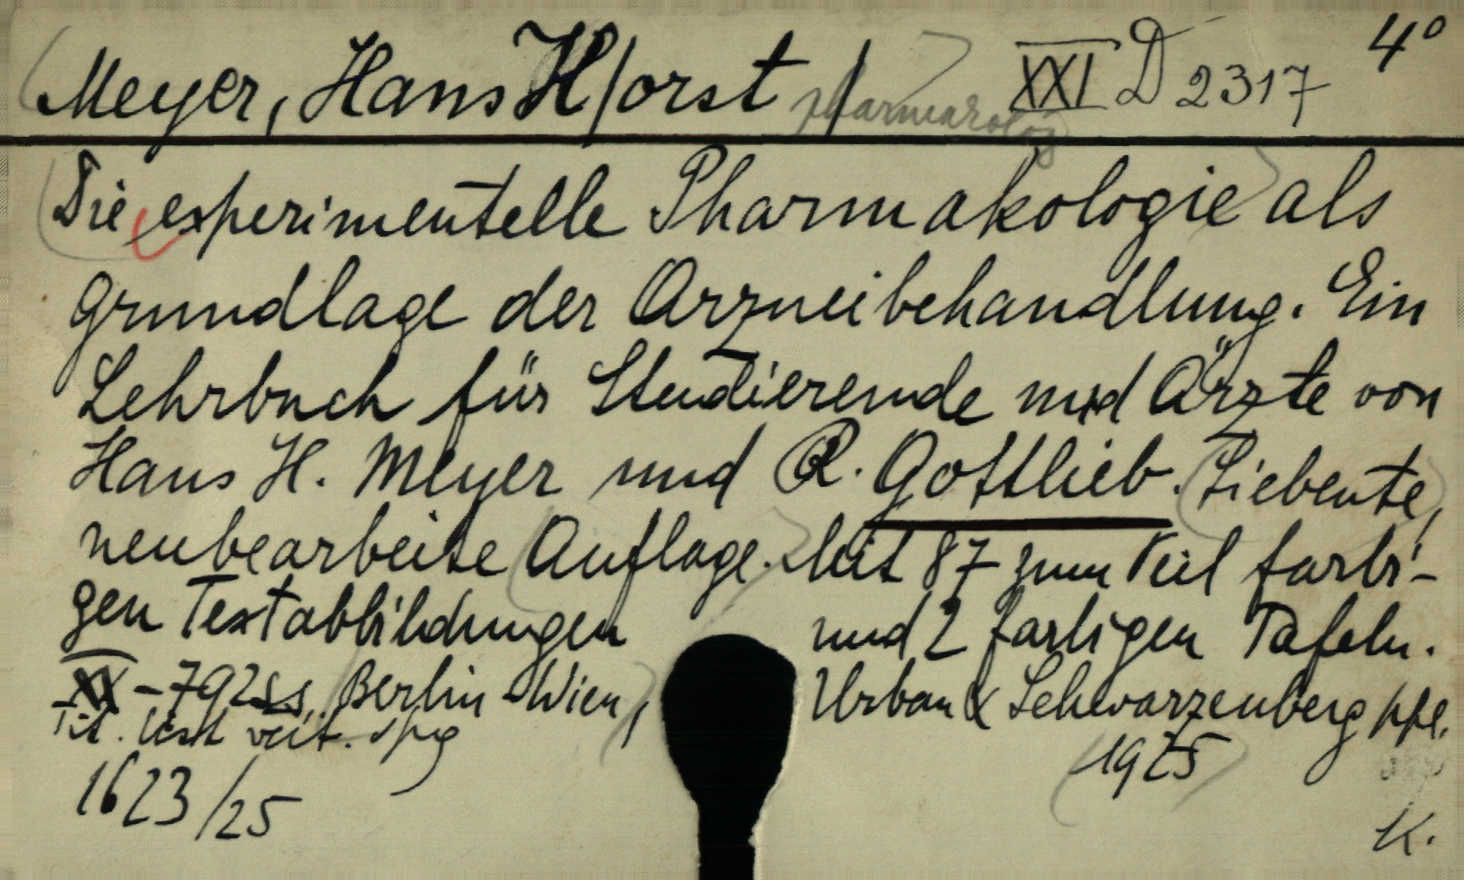 Meyer, Hans H/orst / pharmacolog XXI D 2317 4°
Die experimentelle Pharmakologie als
Grundlage der Arzneibehandlung. Ein
Lehrbuch für Studierende und Ärzte von
Hans H. Meyer und R. Gottlieb. Siebente,
neubearbeite Auflage. Mit 87 zum Teil farbi-
gen Textabbildungen und 2 farbigen Tafeln.
XX - 792 ss, Berlin - Wien, Urban & Schwarzenberg ppl.
Tit. 1925
1623/25
K.